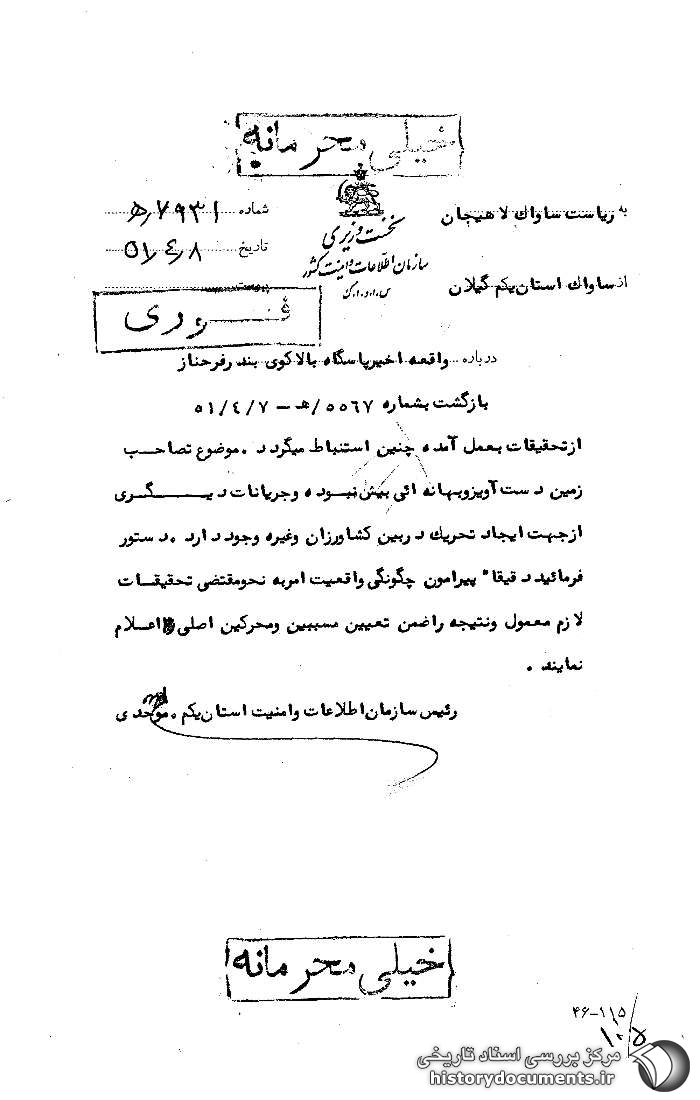 خیلی محرمانه
به ریاست ساواک لاهیجان
نخست وزیری
سازمان اطلاعات و امنیت کشور
س.ا.و.ا.ک
شماره ۷۹۳۱/ﻫ
تاریخ ۵۱/۴/۸
پیوست
از ساواک استان یکم گیلان
فوری
درباره واقعه اخیر پاسگاه بالاکوی بندر فرحناز
بازگشت بشماره ۵۵۶۷/هـ – ۵۱/۴/۷
از تحقیقات بعمل آمده چنین استنباط میگردد . موضوع تصاحب
زمین دست آویز و بهانه ائی بیش نبوده و جریانات دیگری
از جهت ایجاد تحریک در بین کشاورزان وغیره وجود دارد . دستور
فرمائید دقیقا" پیرامون چگونگی واقعیت امر به نحو مقتضی تحقیقات
لازم معمول ونتیجه را ضمن تعیین مسببین ومحرکین اصلی اعلام
نمایند .
رئیس سازمان اطلاعات و امنیت استان یکم . موحدی
خیلی محرمانه
۴۶–۱۱۵
مرکز بررسی اسناد تاریخی
historydocuments.ir